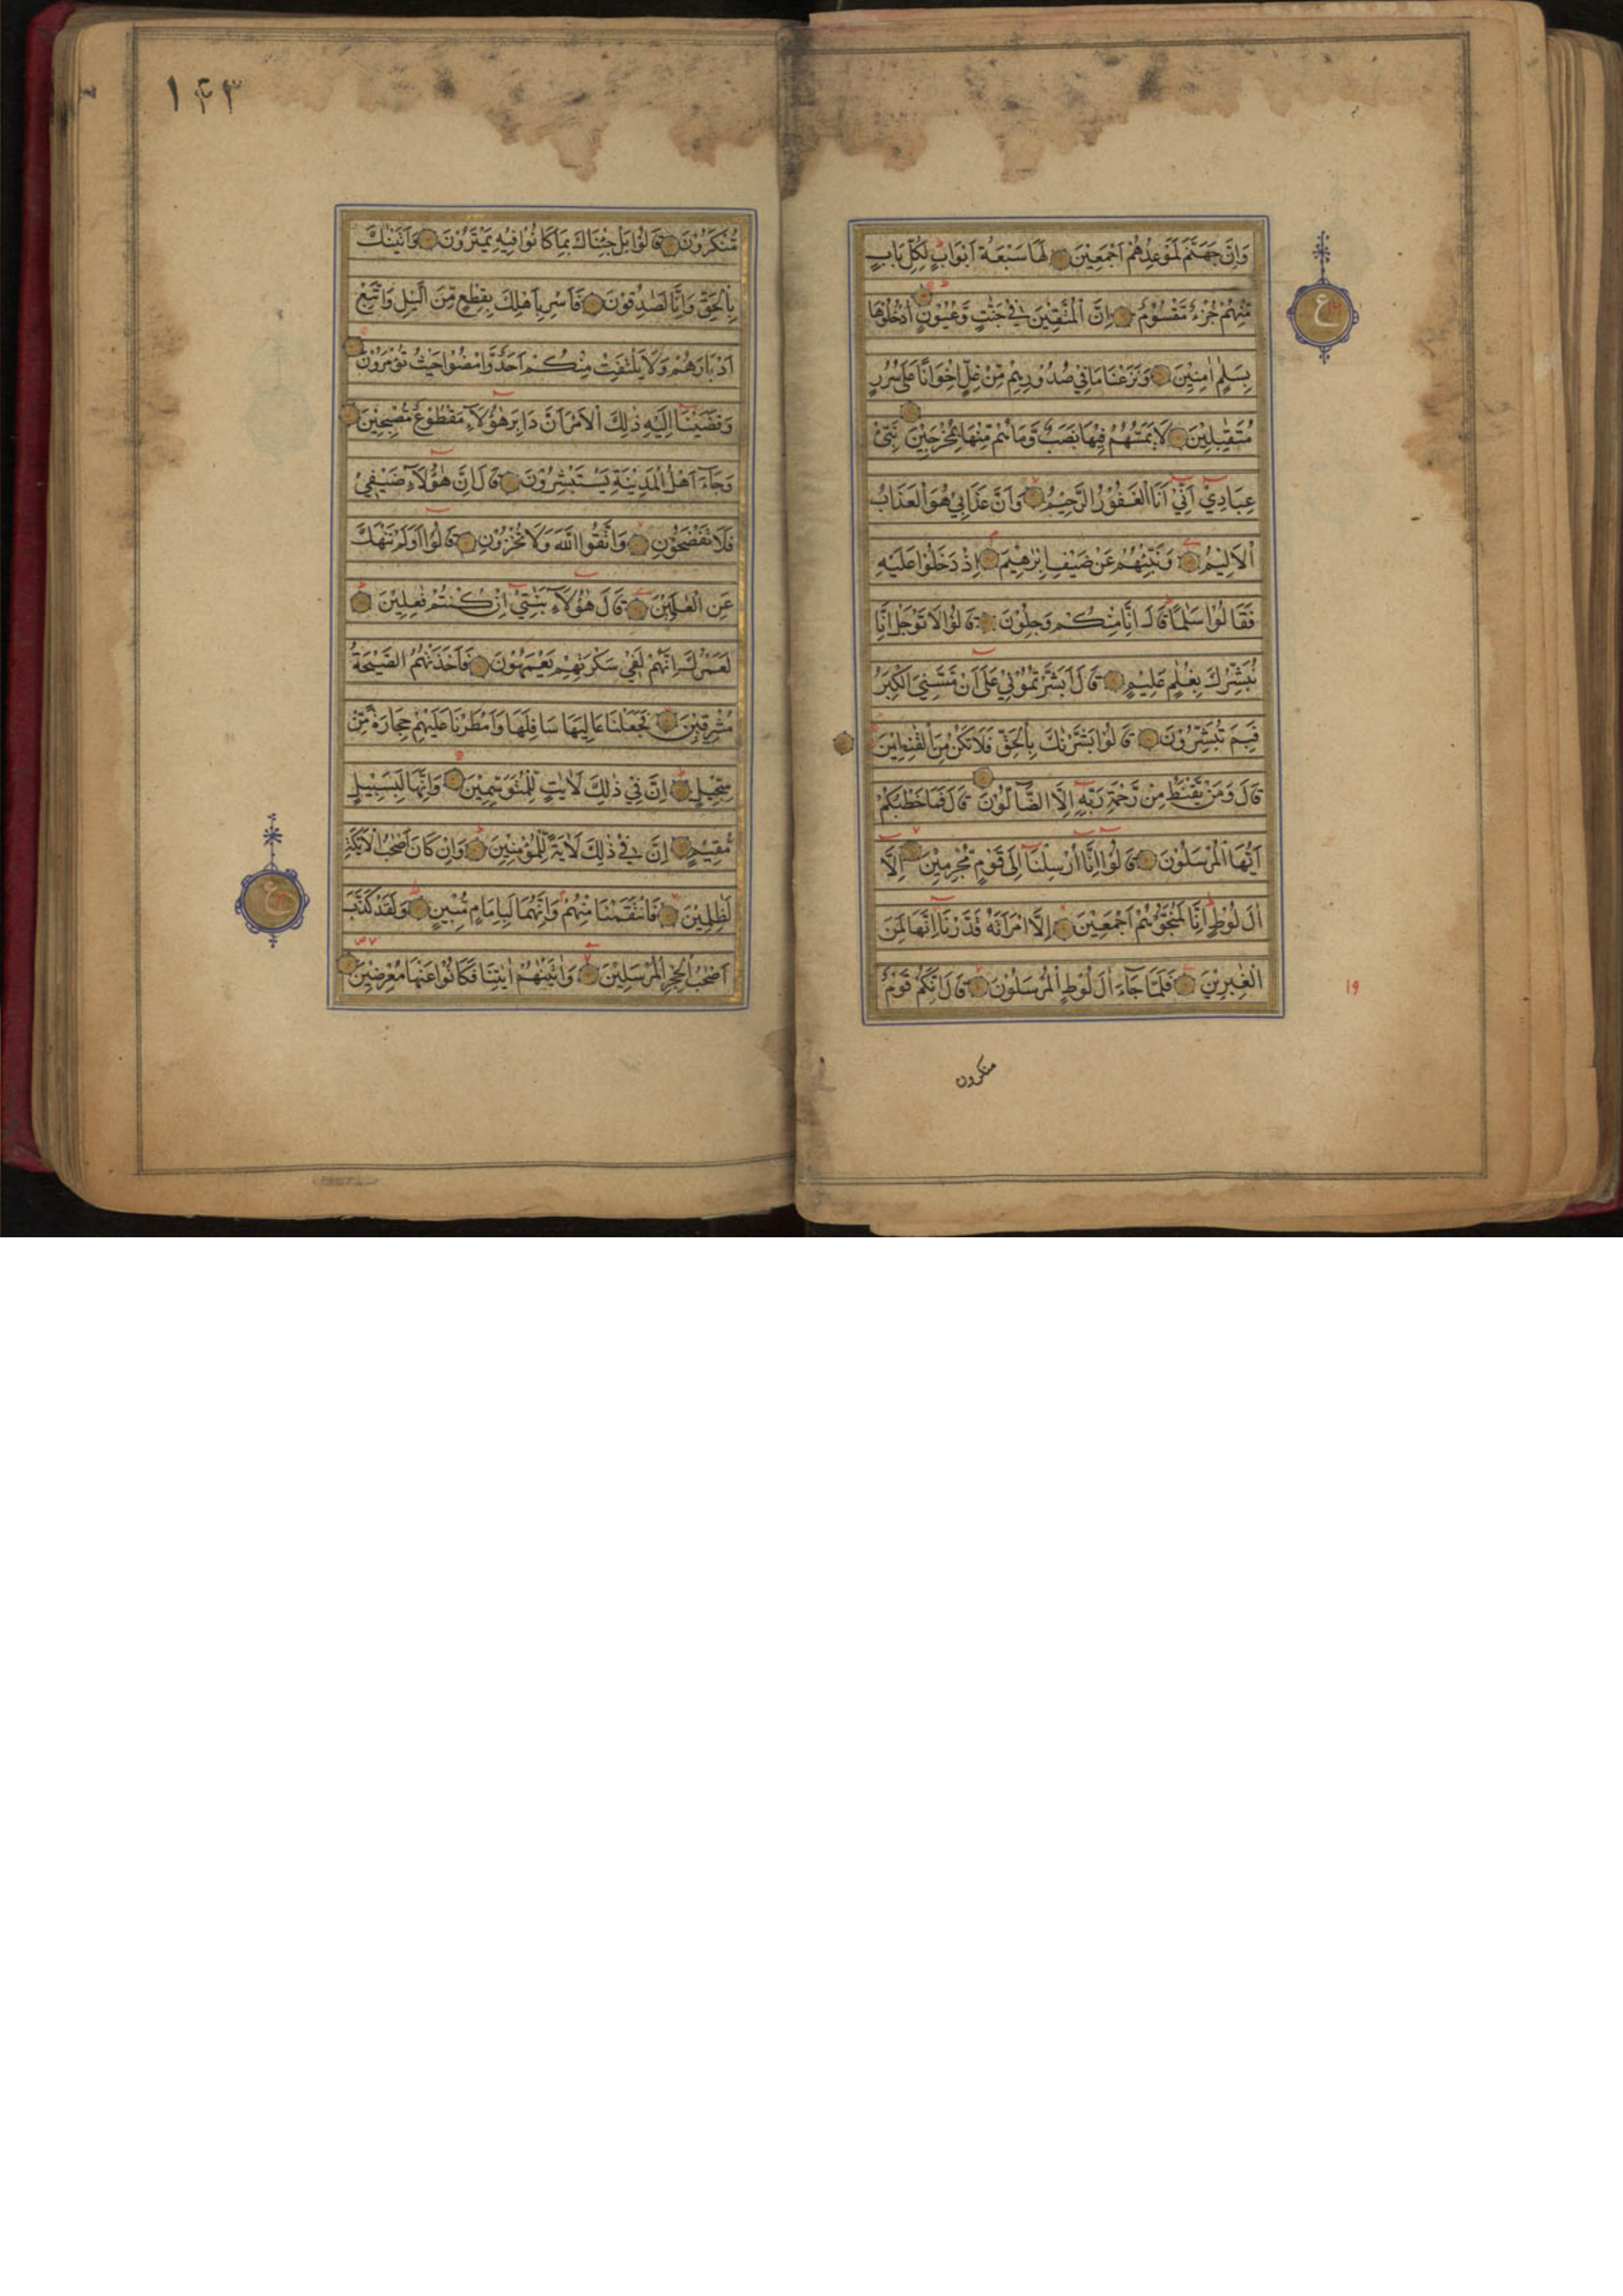 وَاِنَّ جَهَنَّمَ لَمَوْعِدُهُمْ اَجْمَعِيْنَ لَهَا سَبْعَةُ اَبْوَابٍ لِكُلِّ بَابٍ
مِّنْهُمْ جُزْءٌ مَّقْسُوْمٌ اِنَّ الْمُتَّقِيْنَ فِيْ جَنّٰتٍ وَّعُيُوْنٍ اُدْخُلُوْهَا
بِسَلٰمٍ اٰمِنِيْنَ وَنَزَعْنَا مَا فِيْ صُدُوْرِهِمْ مِّنْ غِلٍّ اِخْوَانًا عَلٰى سُرُرٍ
مُّتَقٰبِلِيْنَ لَا يَمَسُّهُمْ فِيْهَا نَصَبٌ وَّمَا هُمْ مِّنْهَا بِمُخْرَجِيْنَ نَبِّئْ
عِبَادِيْ اَنِّيْ اَنَا الْغَفُوْرُ الرَّحِيْمُ وَاَنَّ عَذَابِيْ هُوَ الْعَذَابُ
الْاَلِيْمُ وَنَبِّئْهُمْ عَنْ ضَيْفِ اِبْرٰهِيْمَ اِذْ دَخَلُوْا عَلَيْهِ
فَقَالُوْا سَلٰمًا قَالَ اِنَّا مِنْكُمْ وَجِلُوْنَ قَالُوْا لَا تَوْجَلْ اِنَّا
نُبَشِّرُكَ بِغُلٰمٍ عَلِيْمٍ قَالَ اَبَشَّرْتُمُوْنِيْ عَلٰى اَنْ مَّسَّنِيَ الْكِبَرُ
فَبِمَ تُبَشِّرُوْنَ قَالُوْا بَشَّرْنٰكَ بِالْحَقِّ فَلَا تَكُنْ مِّنَ الْقٰنِطِيْنَ
قَالَ وَمَنْ يَّقْنَطُ مِنْ رَّحْمَةِ رَبِّهٖ اِلَّا الضَّآلُّوْنَ قَالَ فَمَا خَطْبُكُمْ
اَيُّهَا الْمُرْسَلُوْنَ قَالُوْا اِنَّا اُرْسِلْنَا اِلٰى قَوْمٍ مُّجْرِمِيْنَ اِلَّا
اٰلَ لُوْطٍ اِنَّا لَمُنَجُّوْهُمْ اَجْمَعِيْنَ اِلَّا امْرَاَتَهٗ قَدَّرْنَا اِنَّهَا لَمِنَ
الْغٰبِرِيْنَ فَلَمَّا جَآءَ اٰلَ لُوْطٍ الْمُرْسَلُوْنَ قَالَ اِنَّكُمْ قَوْمٌ
منكرون
ع
١٩
١٤٣
مُّنْكَرُوْنَ قَالُوْا بَلْ جِئْنَاكَ بِمَا كَانُوْا فِيْهِ يَمْتَرُوْنَ وَاَتَيْنٰكَ
بِالْحَقِّ وَاِنَّا لَصٰدِقُوْنَ فَاَسْرِ بِاَهْلِكَ بِقِطْعٍ مِّنَ الَّيْلِ وَاتَّبِعْ
اَدْبَارَهُمْ وَلَا يَلْتَفِتْ مِنْكُمْ اَحَدٌ وَّامْضُوْا حَيْثُ تُؤْمَرُوْنَ
وَقَضَيْنَا اِلَيْهِ ذٰلِكَ الْاَمْرَ اَنَّ دَابِرَ هٰؤُلَآءِ مَقْطُوْعٌ مُّصْبِحِيْنَ
وَجَآءَ اَهْلُ الْمَدِيْنَةِ يَسْتَبْشِرُوْنَ قَالَ اِنَّ هٰؤُلَآءِ ضَيْفِيْ
فَلَا تَفْضَحُوْنِ وَاتَّقُوا اللّٰهَ وَلَا تُخْزُوْنِ قَالُوْا اَوَلَمْ نَنْهَكَ
عَنِ الْعٰلَمِيْنَ قَالَ هٰؤُلَآءِ بَنٰتِيْ اِنْ كُنْتُمْ فٰعِلِيْنَ
لَعَمْرُكَ اِنَّهُمْ لَفِيْ سَكْرَتِهِمْ يَعْمَهُوْنَ فَاَخَذَتْهُمُ الصَّيْحَةُ
مُشْرِقِيْنَ فَجَعَلْنَا عَالِيَهَا سَافِلَهَا وَاَمْطَرْنَا عَلَيْهِمْ حِجَارَةً مِّنْ
سِجِّيْلٍ اِنَّ فِيْ ذٰلِكَ لَاٰيٰتٍ لِّلْمُتَوَسِّمِيْنَ وَاِنَّهَا لَبِسَبِيْلٍ
مُّقِيْمٍ اِنَّ فِيْ ذٰلِكَ لَاٰيَةً لِّلْمُؤْمِنِيْنَ وَاِنْ كَانَ اَصْحٰبُ الْاَيْكَةِ
لَظٰلِمِيْنَ فَانْتَقَمْنَا مِنْهُمْ وَاِنَّهُمَا لَبِاِمَامٍ مُّبِيْنٍ وَلَقَدْ كَذَّبَ
اَصْحٰبُ الْحِجْرِ الْمُرْسَلِيْنَ وَاٰتَيْنٰهُمْ اٰيٰتِنَا فَكَانُوْا عَنْهَا مُعْرِضِيْنَ
ع